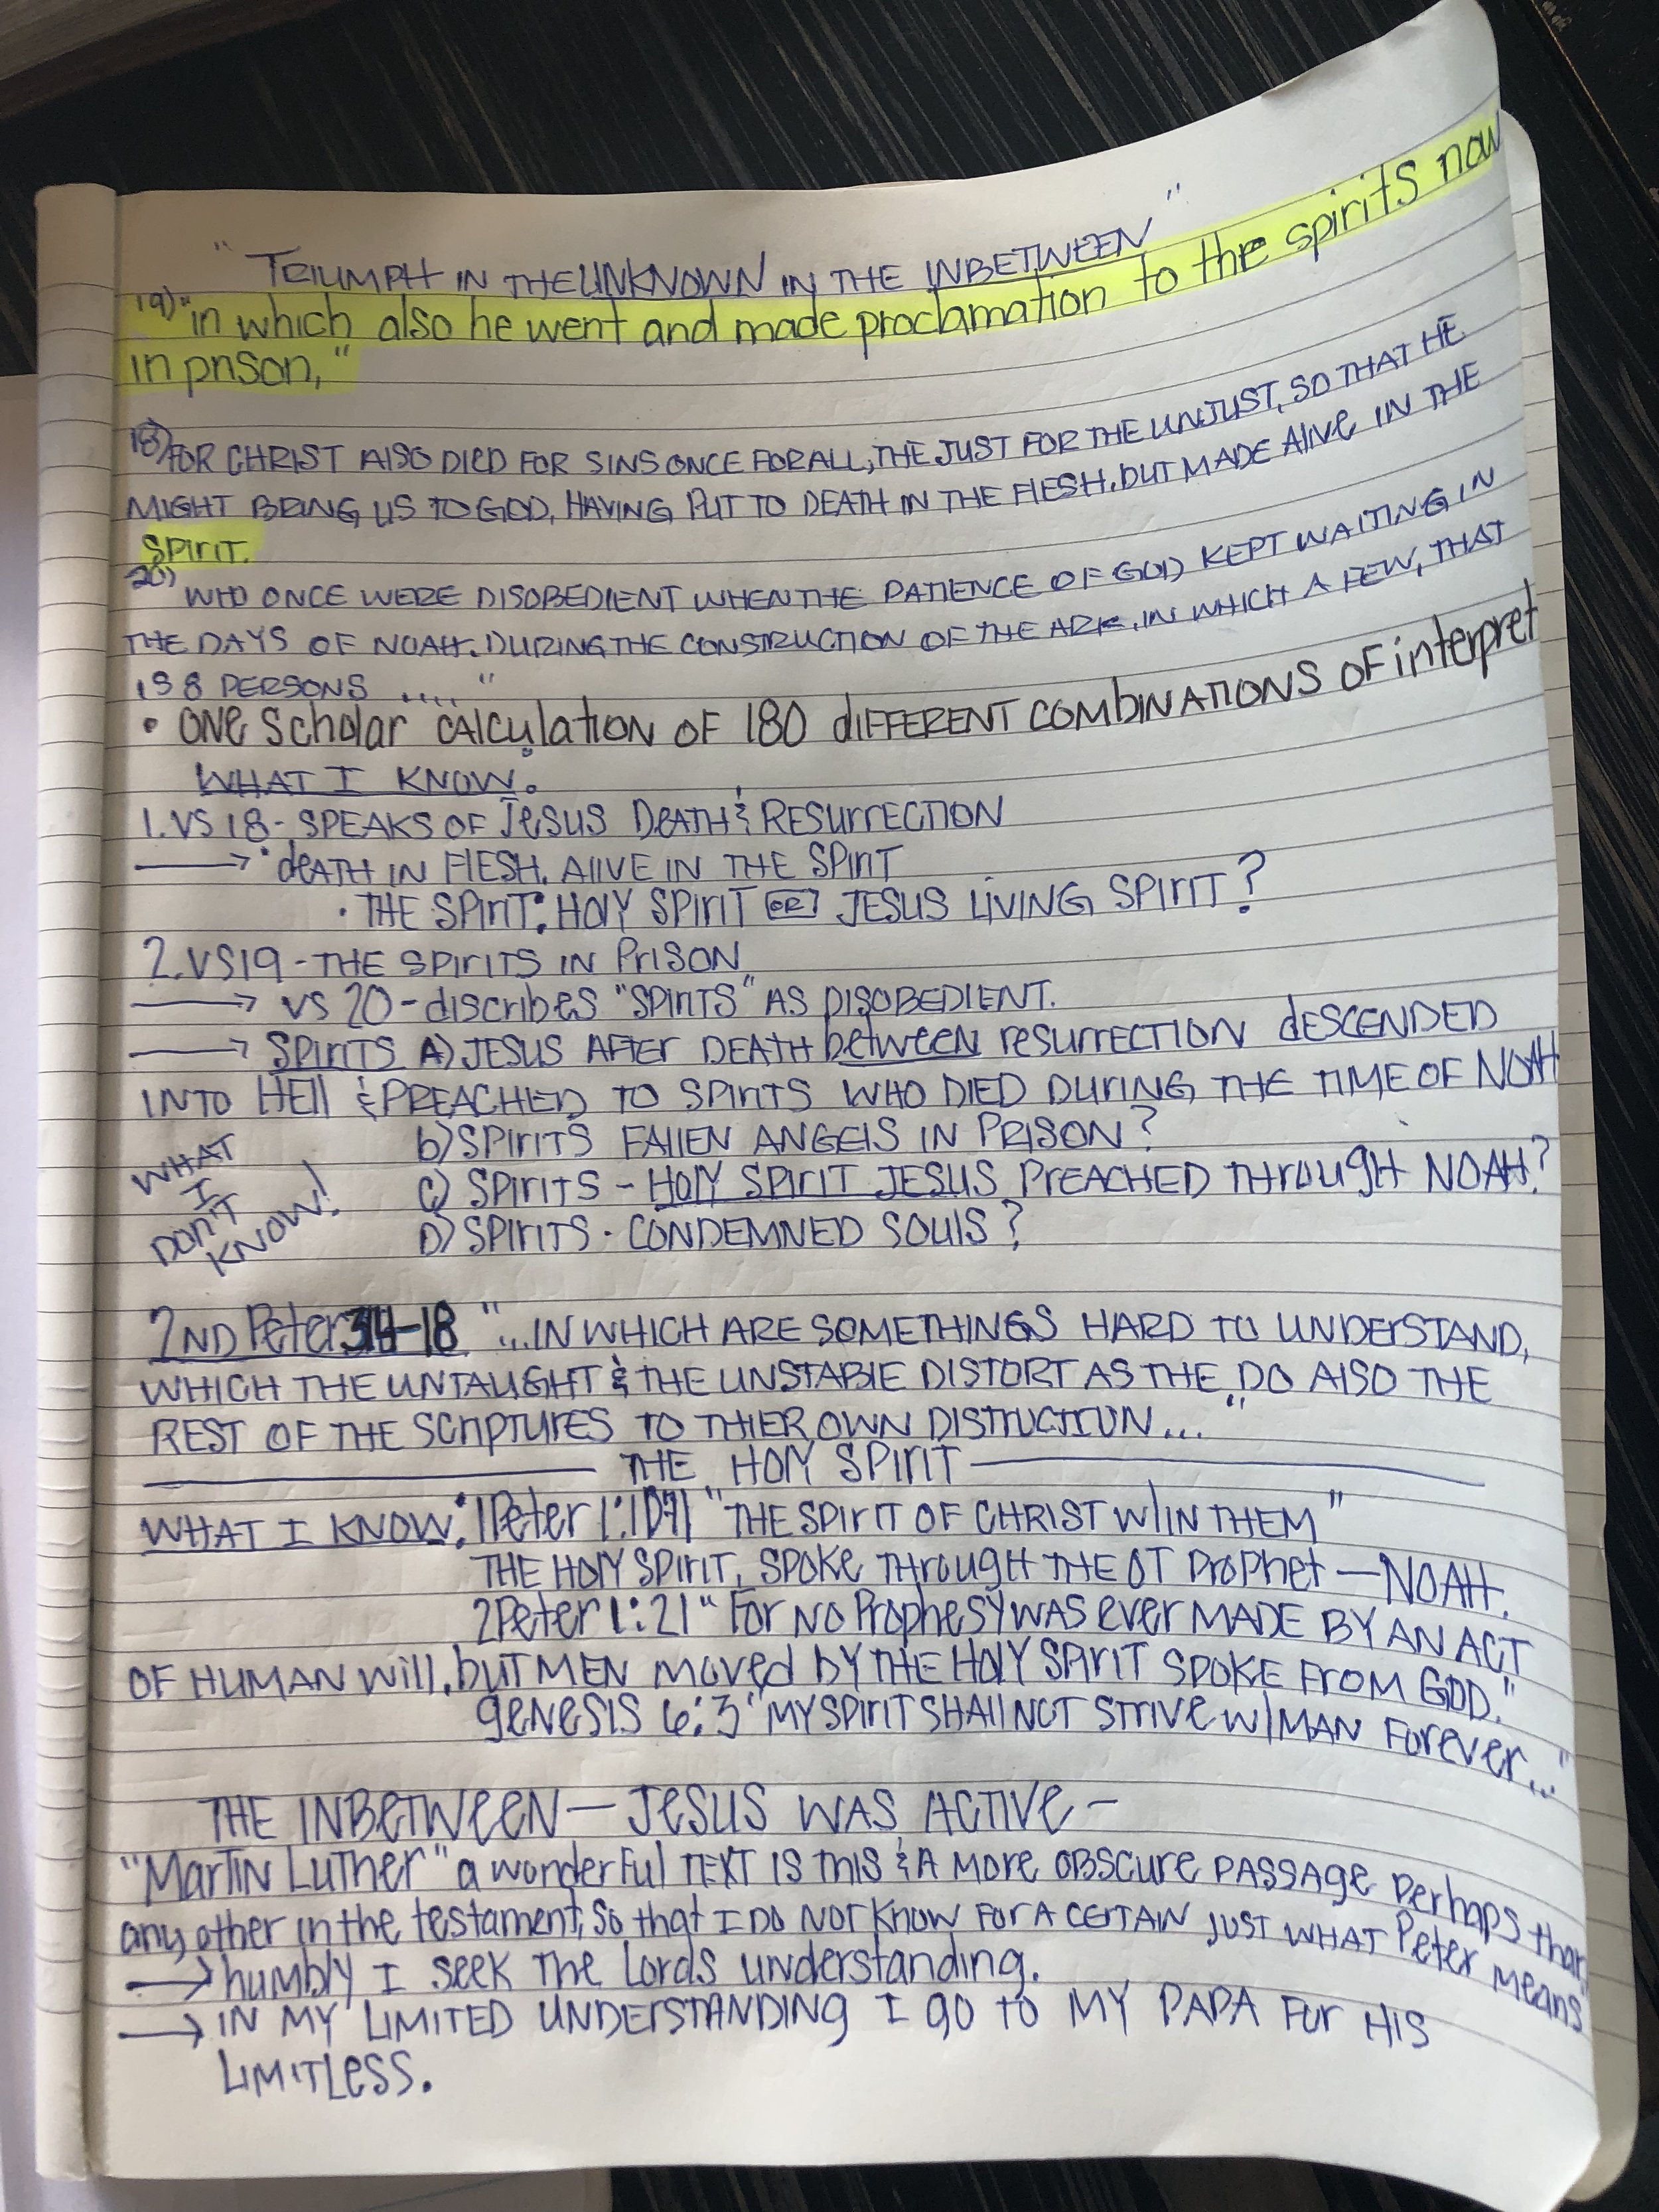 "TRIUMPH IN THE UNKNOWN IN THE INBETWEEN"
19) "in which also he went and made proclamation to the spirits now
in prison,"
18) FOR CHRIST AlSO DIED FOR SINS ONCE FOR ALL, THE JUST FOR THE UNJUST, SO THAT HE
MIGHT BRING US TO GOD, HAVING PUT TO DEATH IN THE FlESH, bUT MADE Alive IN THE
SPIrIT.
20) WHO ONCE WERE DISOBEDIENT WHEN THE PATIENCE OF GOD KEPT WAITING IN
THE DAYS OF NOAH. DURING THE CONSTRUCTION OF THE ARK, IN WHICH A FEW, THAT
IS 8 PERSONS ....."
• ONe Scholar CAlculatiON OF 180 diFFERENT COMbINATIONS OF interpret
WHAT I KNOW:
1. VS 18 - SPEAKS OF JeSUS DeATH & RESUrrECTION
→ • deATH IN FlESH, AlIVE IN THE SPIrIT
• THE SPIrIT: HOlY SPIrIT OR JESUS LiViNG SPIrIT?
2. VS19 - THE SPIrITS IN PrISON
→ VS 20 - discribes "SPIrITS" AS DISOBEDIENT.
→ SPIrITS A) JESUS AFTER DEATH between resurrECTION dESCENDED
INTO HEll & PREACHED TO SPIrITS WHO DIED DURING THE TIME OF NOAH
b) SPIrITS FAllEN ANGElS IN PrISON?
WHAT I DON'T KNOW!
C) SPIrITS - HOlY SPIRIT JESUS PrEACHED THrough NOAH?
D) SPIrITS • CONDEMNED SOUlS?
2ND Peter 314-18 "...IN WHICH ARE SOME THINGS HARD TO UNDErSTAND,
WHICH THE UNTAUGHT & THE UNSTABlE DISTORT AS THE DO AlSO THE
REST OF THE SCrIPTURES TO THIER OWN DISTRUCTION..."
THE HOlY SPIrIT
WHAT I KNOW: 1Peter 1: "THE SPIrIT OF CHrIST W/IN THEM"
THE HOlY SPIrIT, SPOKe THrougH THE OT PrOpHet — NOAH.
2Peter 1:21 "For NO ProphesY WAS ever MADE BY AN ACT
OF HUMAN Will, bUT MEN moved bY THE HOlY SPIrIT SPOKE FROM GOD."
GENESIS 6:3 "MY SPIrIT SHAll NOT STrIVe W/MAN Forever..."
THE INBETWEEN — JeSUS WAS ACTIVe -
"MarTIN LuTHer" a wonderFul TEXT IS THIS & A MOre OBSCUre PASSAge perhaps than
any other in the testament, So that I DO NOT KNOW FOR A CErTAIN JUST WHAT Peter MEANS
→ humbly I seek THE LorDs understanding.
→ IN MY LIMITED UNDErSTANDING I go to MY PAPA For HIS
LIMITLess.